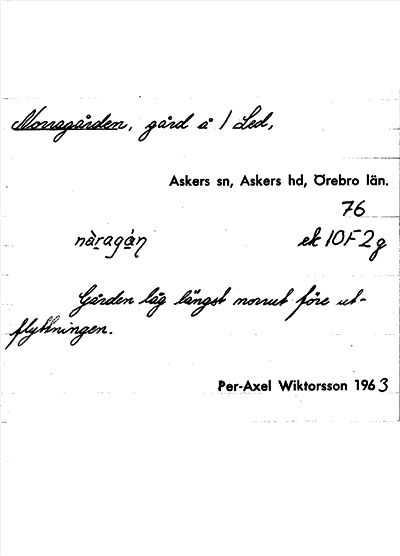 Norragården, gård å 1 Led,
Askers sn, Askers hd, Örebro län.
76
nàragá̱ṇ ek 10F2g
Gården låg längst norrut före ut-
flyttningen.
Per-Axel Wiktorsson 1963